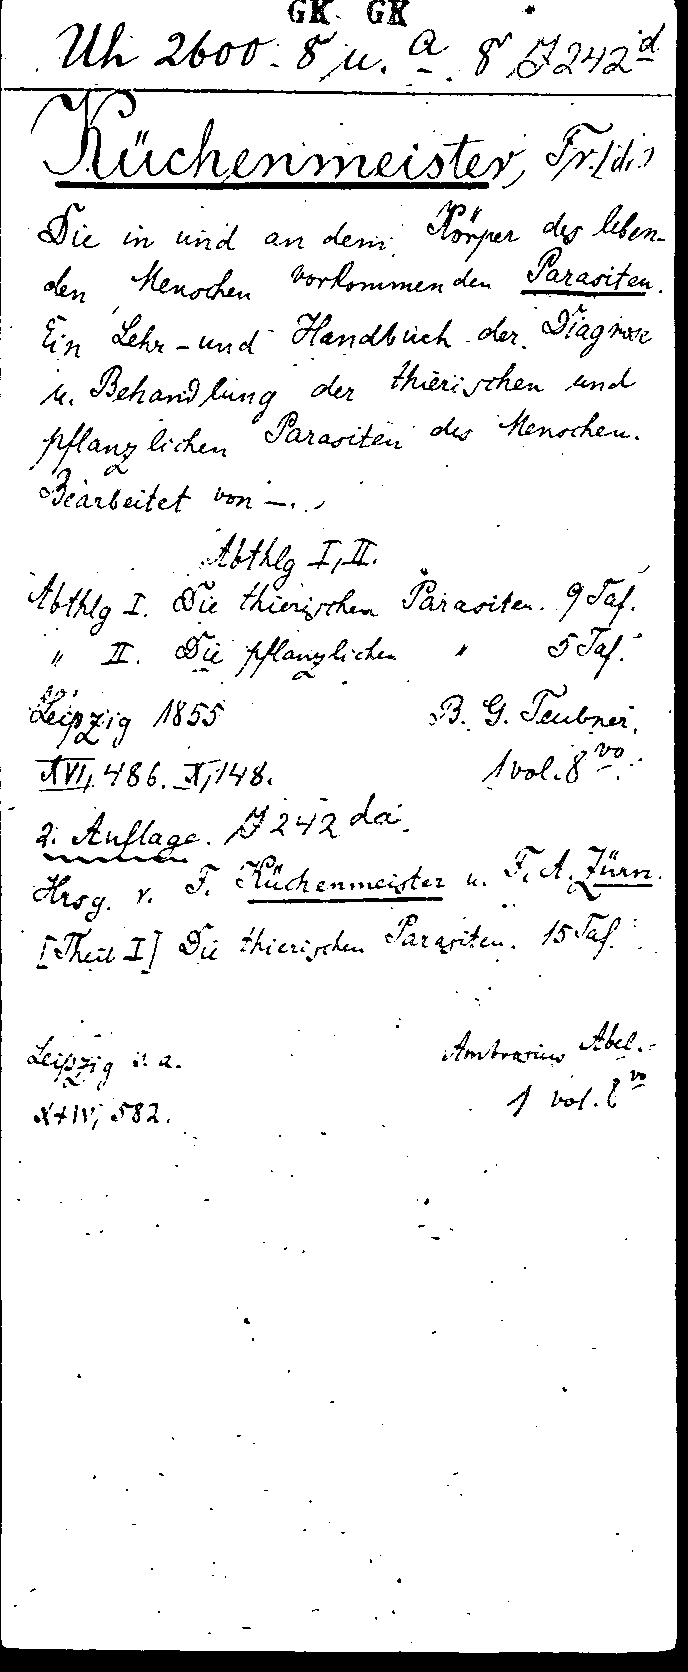 GK GK
Uh 2600-8 u. a. 8 J 242 d
Küchenmeister, Fr. (di)
Die in und an dem Körper des leben-
den Menschen vorkommenden Parasiten.
Ein Lehr- und Handbuch der Diagnose
u. Behandlung der thierischen und
pflanzlichen Parasiten des Menschen.
Bearbeitet von —.
Abthlg I, II.
Abthlg I. Die thierischen Parasiten. 9 Taf.
" II. Die pflanzlichen " 5 Taf.
Leipzig 1855 B. G. Teubner.
XVI, 486. X, 148. 1 vol. 8vo.
2. Auflage. J 242 da.
Hrsg. v. F. Küchenmeister u. F. A. Zürn.
[Theil I] Die thierischen Parasiten. 15 Taf.
Leipzig s. a. Ambrosius Abel.
582. 1 vol. 8vo